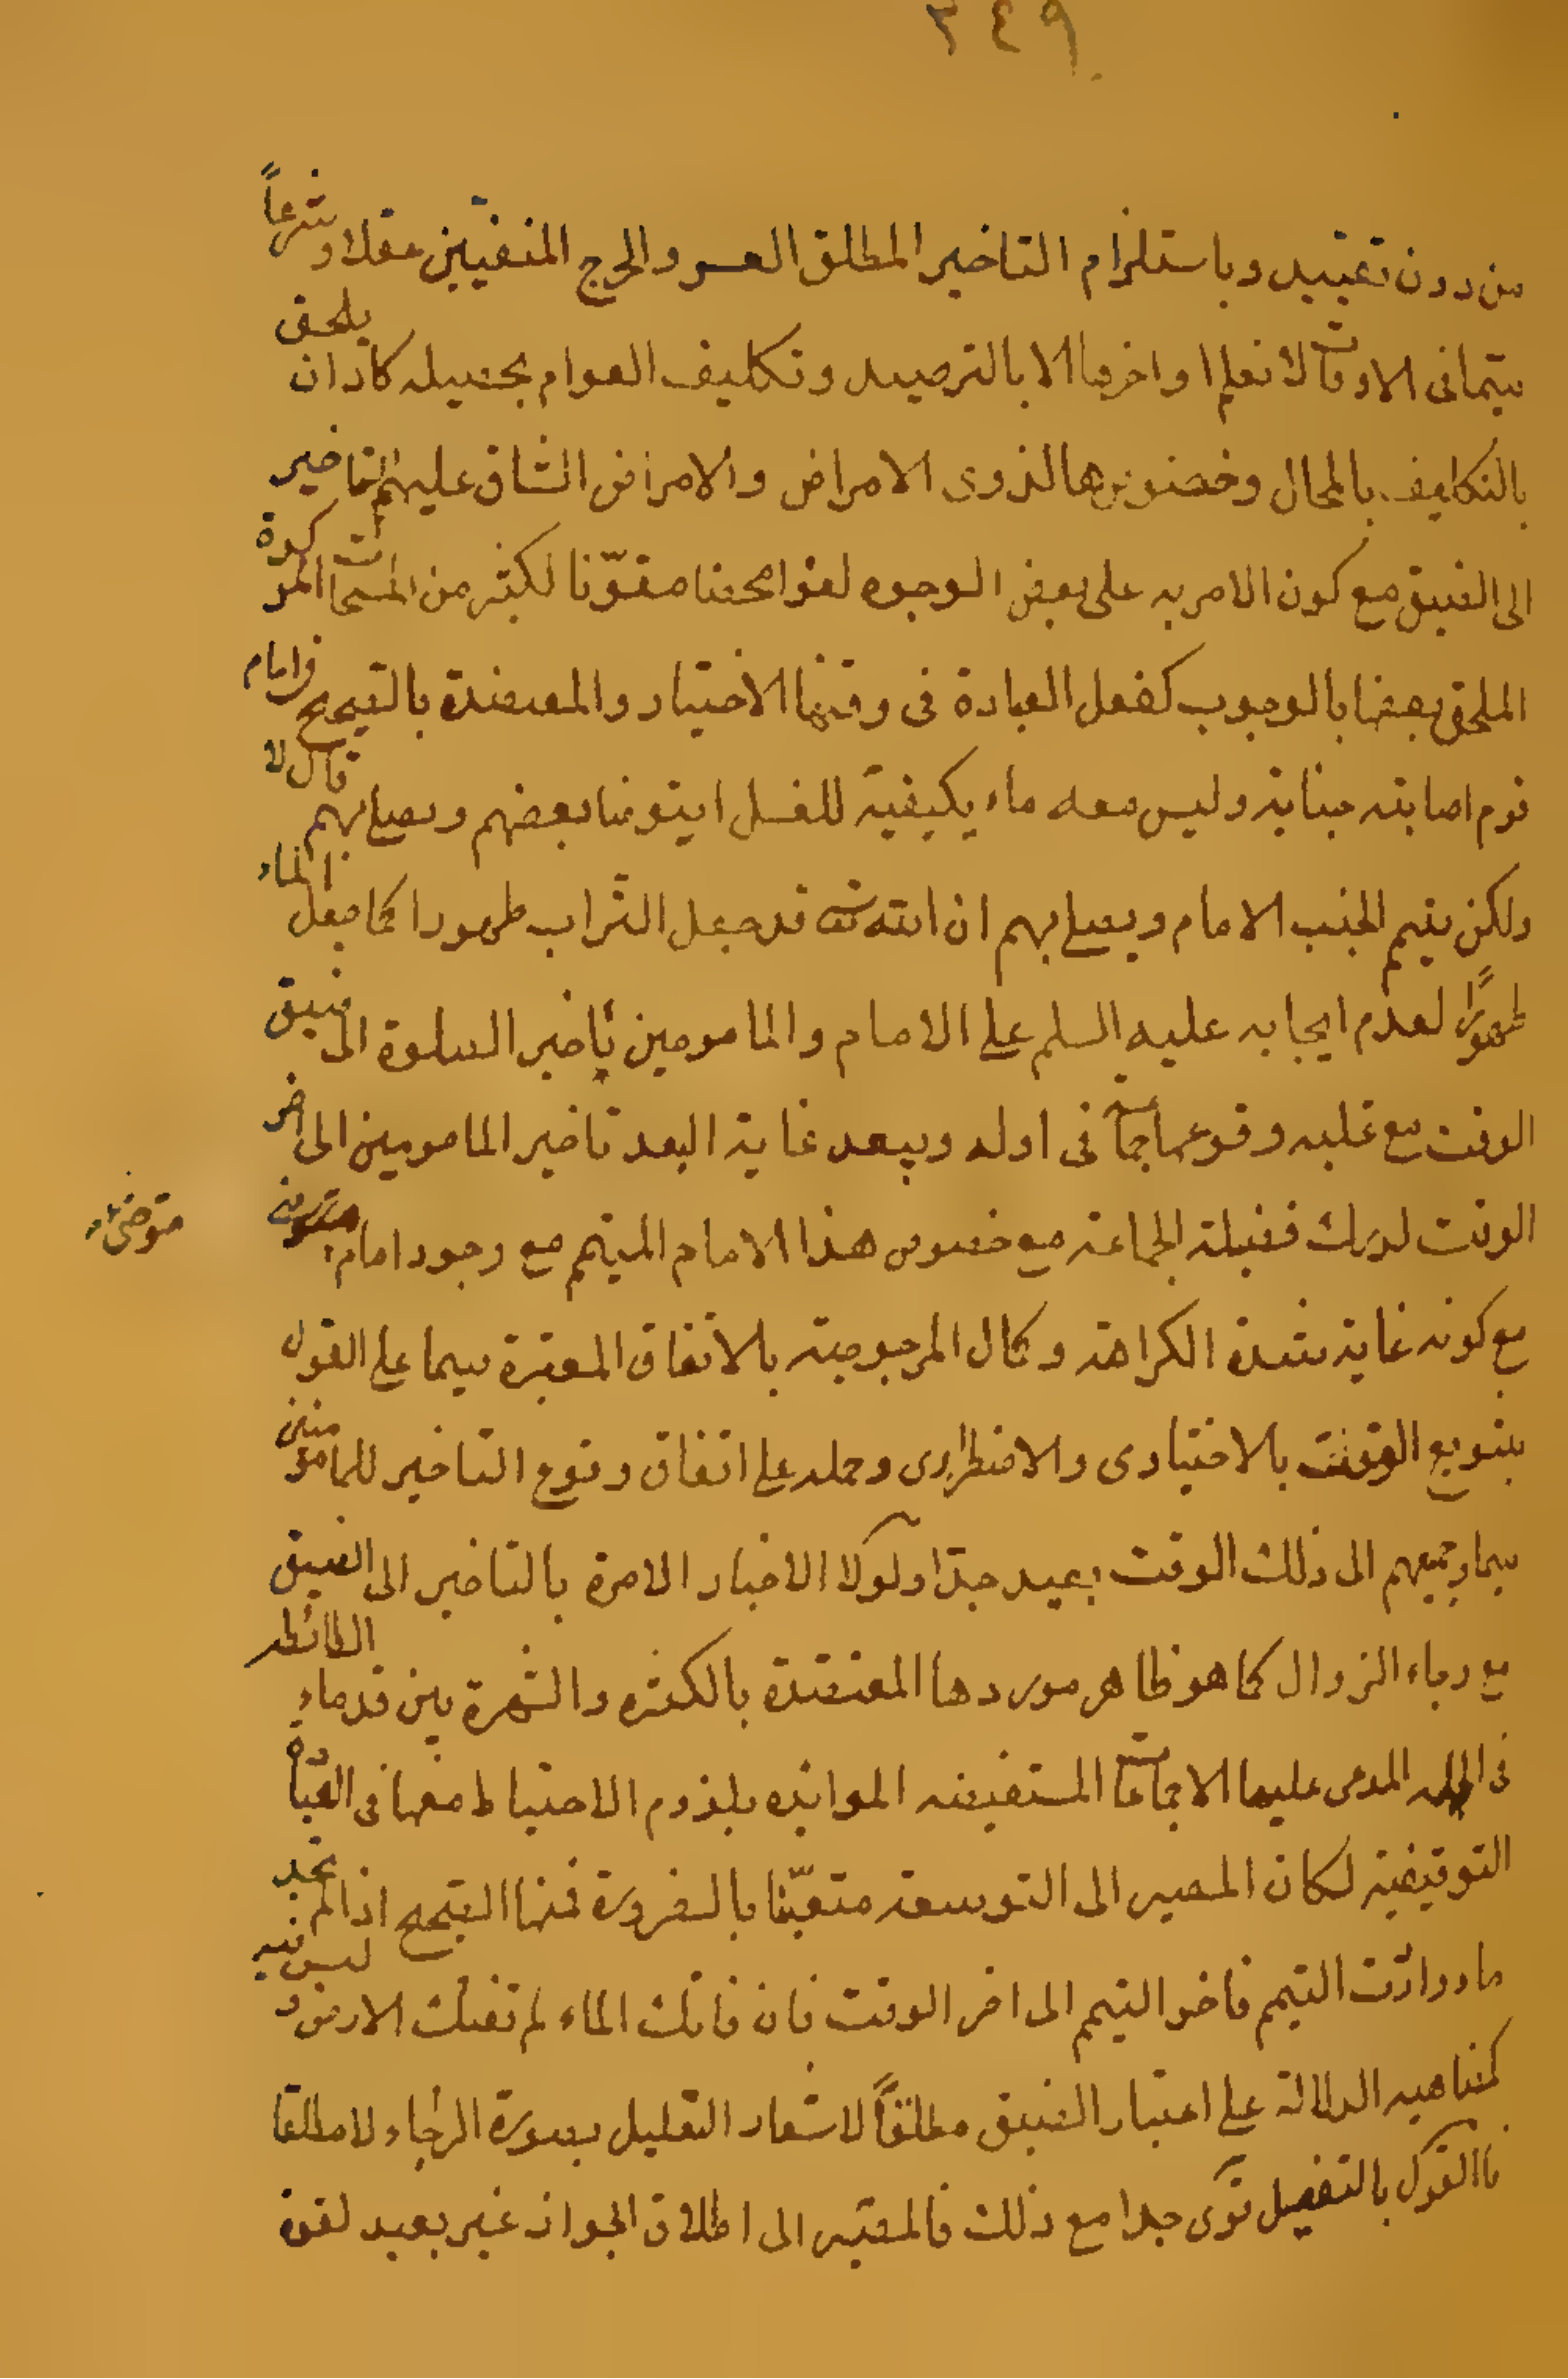 ٣٤٩
من دون تقييد وباستلزام التاخير المطلق العسر والحرج المنفيين عقلا وشرعاً
سيما في الاوقات لا نعلم اواخرها الا بالترصيد وتكليف العوام بتحصيله كاد ان يلحق
بالتكليف بالمحال وخصوصها لذوى الامراض والامراض الشاق عليهم التاخير
الى الضيق مع كون الامر به على بعض الوجوه لغوا محضا مفوّتا لكثير من المستحبات المؤكدة
الملحق بعضها بالوجوب كفعل العبادة فى وقتها الاختيار والمعتضدة بالصحيح في امام
قوم اصابته جنابة وليس معه ماء يكفيه للغسل ايتوضا بعضهم ويصلى بهم قال لا
ولكن يتيم الجنب الامام ويصلى بهم ان الله تعالى قد جعل التراب طهورا كما جعل الماء
طهورًا لعدم ايجابه عليه السلم على الامام والمامومين تاخير الصلوة الى ضيق
الوقت مع غلبه وقوع جماعة فى اوله وبعد غاية البعد تاخير المامومين الى اخر
الوقت لدرك فضيلة الجماعة مع خصوص هذا الامام المتيمم مع وجود امام متوضئ
متوضئ
مع كونه غاية شدة الكراهة وكمال المرجوحية بالاتفاق المعتبرة سيما على القول
بتنويع الوقت بالاختيارى والاضطرارى وحمله على اتفاق وقوع التاخير للمامومين
سيما جميعهم الى ذلك الوقت بعيد جدّا ولولا الاخبار الامرة بالتاخير الى الضيق
مع رجاء الزوال كما هو ظاهر موردها المعتضدة بالكثره والشهرة بين قدماء الطائفه
فى الجمله المدعى عليها الاجماعات المستفيضه الموايده بلزوم الاحتياط فى العبادة
التوقيفية لكان المصير الى التوسعه متعيّنا بالضرورة فمنها الصحيح اذا لم تجد
ماء واردت التيمم فاخر التيمم الى اخر الوقت فان فاتك الماء لم تفتك الارض وليس فيه
كمضاهيه الدلالة على اعتبار الضيق مطلقاً لاشعار التعليل بصورة الرجاء لا مطلقا
فالقول بالتفصيل قوى جدا مع ذلك فالمصير الى اطلاق الجواز غير بعيد لقوة